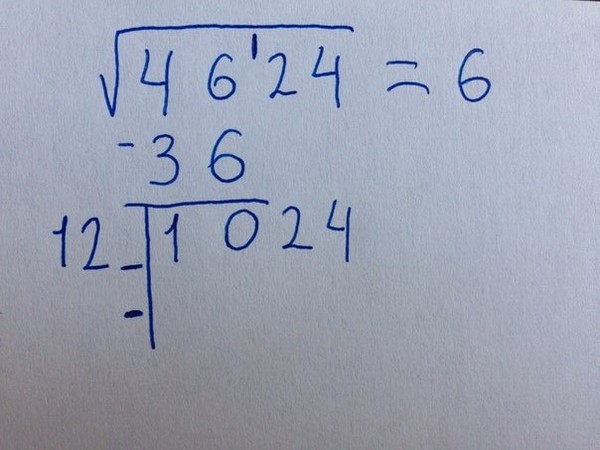 √46'24 = 6
-36
12_ 1024
-